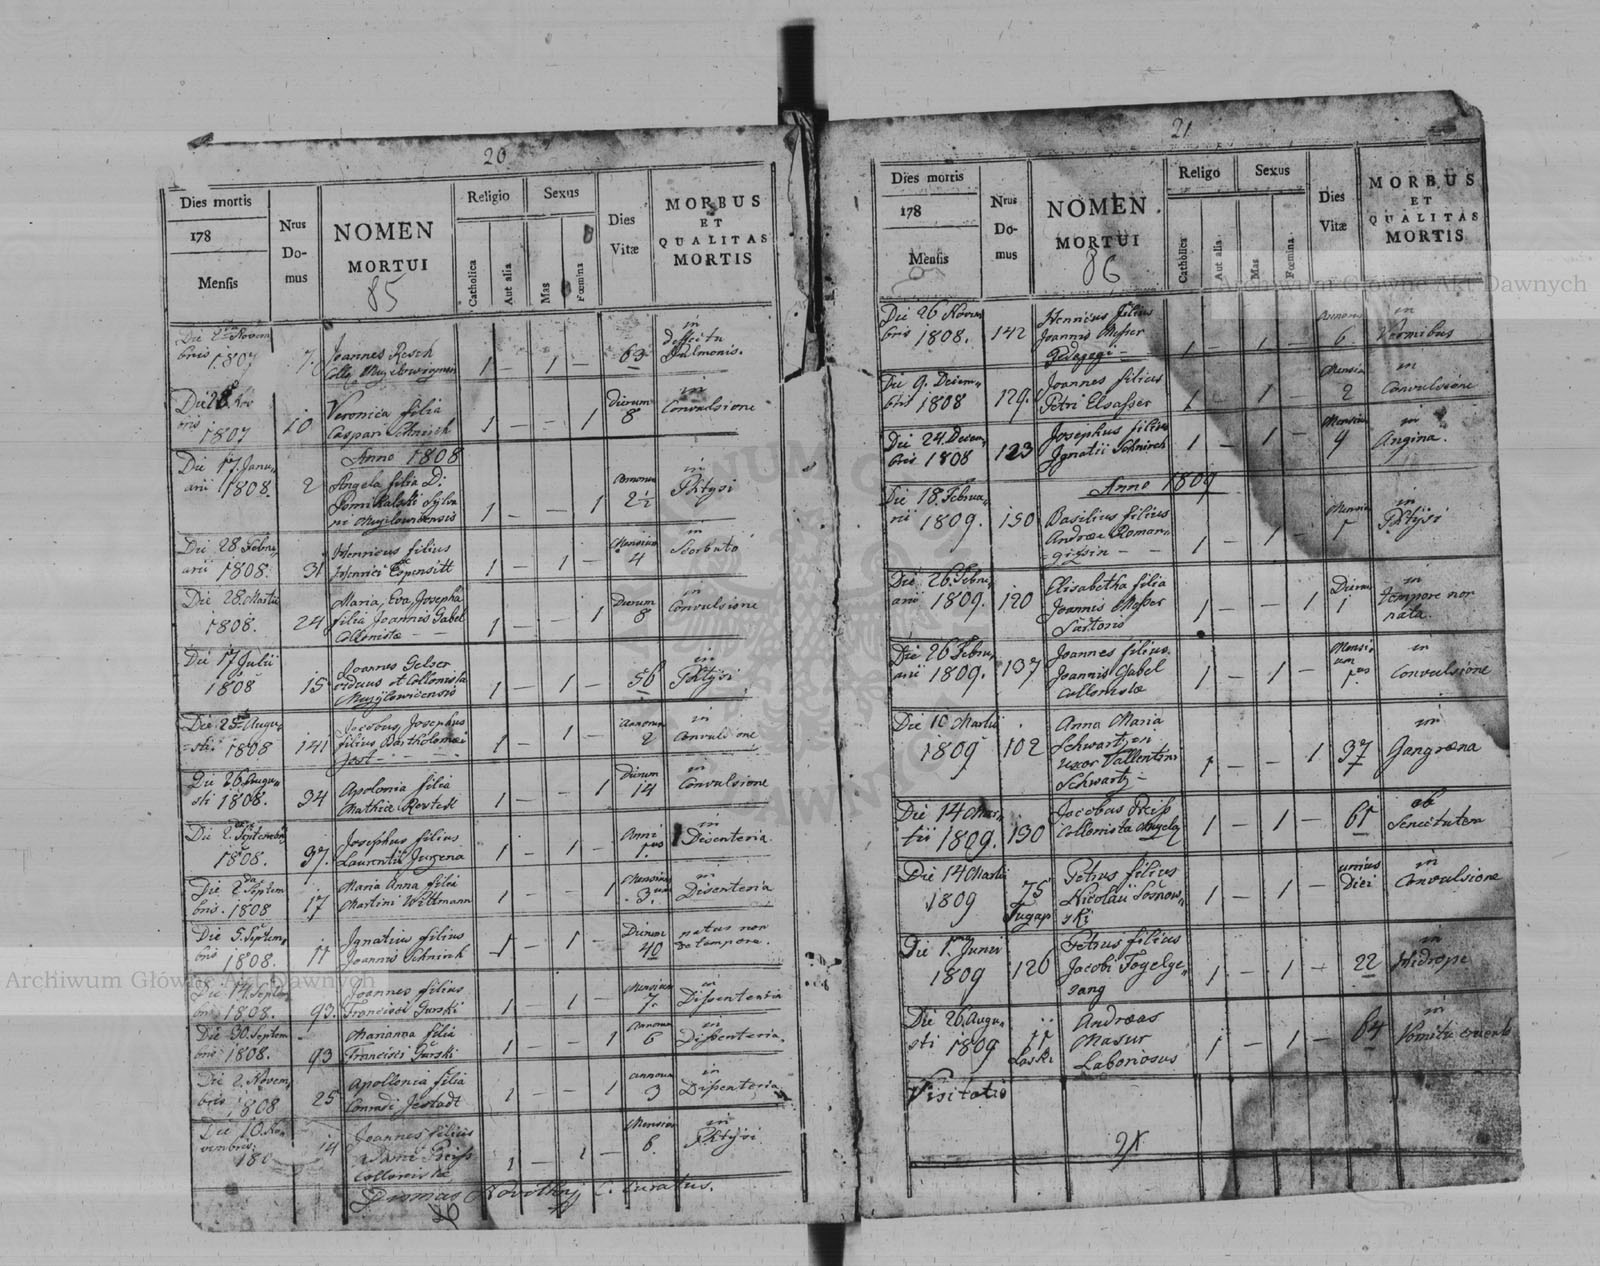 20
Dies mortis
178
Mensis
Nrus
Do-
mus
NOMEN
MORTUI
85
Religio
Catholica
Aut alia
Sexus
Mas
Fœmina
Dies
Vitæ
MORBUS
ET
QUALITAS
MORTIS
Die 2 Novem
bris 1807 7. Joannes Resch 1 — 1 — 63 in
deffectu
Pulmonis.
bris
1807 10 Veronica filia
Caspari Schnirch 1 — — 1 Dierum
8 in
Convulsione
Anno 1808
Die 17 Janu-
arii 1808. 2 Angela filia D:
1 — — 1 Annorum
2½ in
Phtysi
Die 28. Febru
arii 1808. 31 Henricus filius
Henrici 1 — 1 — Mensium
4 in
Scorbuto
Die 28. Martii
1808. 24 Maria, Eva, Josepha
filia Joannis Gabel
Collonistæ — — 1 — — 1 Dierum
8 in
Convulsione
Die 17 Julii
1808 15 Joannes Gelser
viduus et Collonista
1 — 1 — 56 in
Phtysi
Die 25 Augu-
sti 1808 141 Jacobus, Josephus
filius Bartholomæi
Jost 1 — 1 — Annorum
2 in
Convulsione
Die 26. Augu-
sti 1808. 34 Apolonia filia
Mathiæ 1 — — 1 Dierum
14 in
Convulsione
Die 2 Septembris
1808. 37. Josephus filius
Laurentii 1 — 1 — Anni
1 in
Disenteria
Die 2da Septem
bris. 1808 17 Maria Anna filia
Martini Wittmann 1 — — 1 Mensium
3 in
Disenteria
Die 5. Septem
bris 1808. 11 Ignatius filius
Joannis Schnirch 1 — 1 — Dierum
40 natus non
de tempore.
Die 14. Septem
bris 1808. 93. Joannes filius
Francisci Gurski 1 — 1 — Mensium
7. in
Dissenteria
Die 30. Septem
bris 1808. 93 Marianna filia
Francisci Gurski 1 — — 1 Annorum
6 in
Dissenteria.
Die 2. Novem
bris 1808 25 Apollonia filia
Conradi 1 — — 1 Annorum
3 in
Dissenteria
Die 10. No-
vembris
180 14 Joannes filius
Preiss
Collonistæ 1 — 1 — Mensium
6. in
Phtysi
Dismas Novothny C. Curatus.
21
Dies mortis
178
Mensis
Nrus
Do-
mus
NOMEN
MORTUI
86
Religo
Catholica
Aut alia
Sexus
Mas
Fœmina
Dies
Vitæ
MORBUS
ET
QUALITAS
MORTIS
Die 26 Novem
bris 1808. 142 Henricus filius
Joannis Messer
1 — 1 — Annorum
6. in
Vermibus
Die 9. Decem-
bris 1808 129. Joannes filius
Petri Elsasser 1 — 1 — Mensium
2 in
Convulsione
Die 24. Decem-
bris 1808 123 Josephus filius
Ignatii Schnirch 1 — 1 — Mensium
9 in
Angina.
Anno 1809
Die 18. Februa-
rii 1809. 150 Basilius filius
Andreæ Roman-
1 — 1 — in
Phtysi
Die 26. Febru-
arii 1809. 120 Elisabetha filia
Joannis Messer
Sartoris 1 — — 1 Dierum
1 in
tempore non
nata.
Die 26 Febru-
arii 1809. 137 Joannes filius
Joannis Gabel
Collonistæ 1 — 1 — in
Convulsione
Die 10 Martii
1809 102 Anna Maria
Schwartzin
uxor Vallentini
Schwartz — 1 — — 1 37 in
Gangræna
Die 14 Mar-
tii 1809. 130 Jacobus Preiss
Collonista 1 — 1 — 61 ob
Senectutem
Die 14 Martii
1809 75 Petrus filius
Nicolai Sosnow-
ski 1 — 1 — unius
Diei in
Convulsione
Die 1ma Junii
1809 126 Petrus filius
Jacobi Fogelge-
sang 1 — 1 — 22 in
Hidrope
Die 26. Augu-
sti 1809 11
Laski Andreas
Masur
Laboriosus 1 — 1 — 64 in
Vomitu cruento
Visitatio
Archiwum Główne Akt Dawnych
Archiwum Główne Akt Dawnych